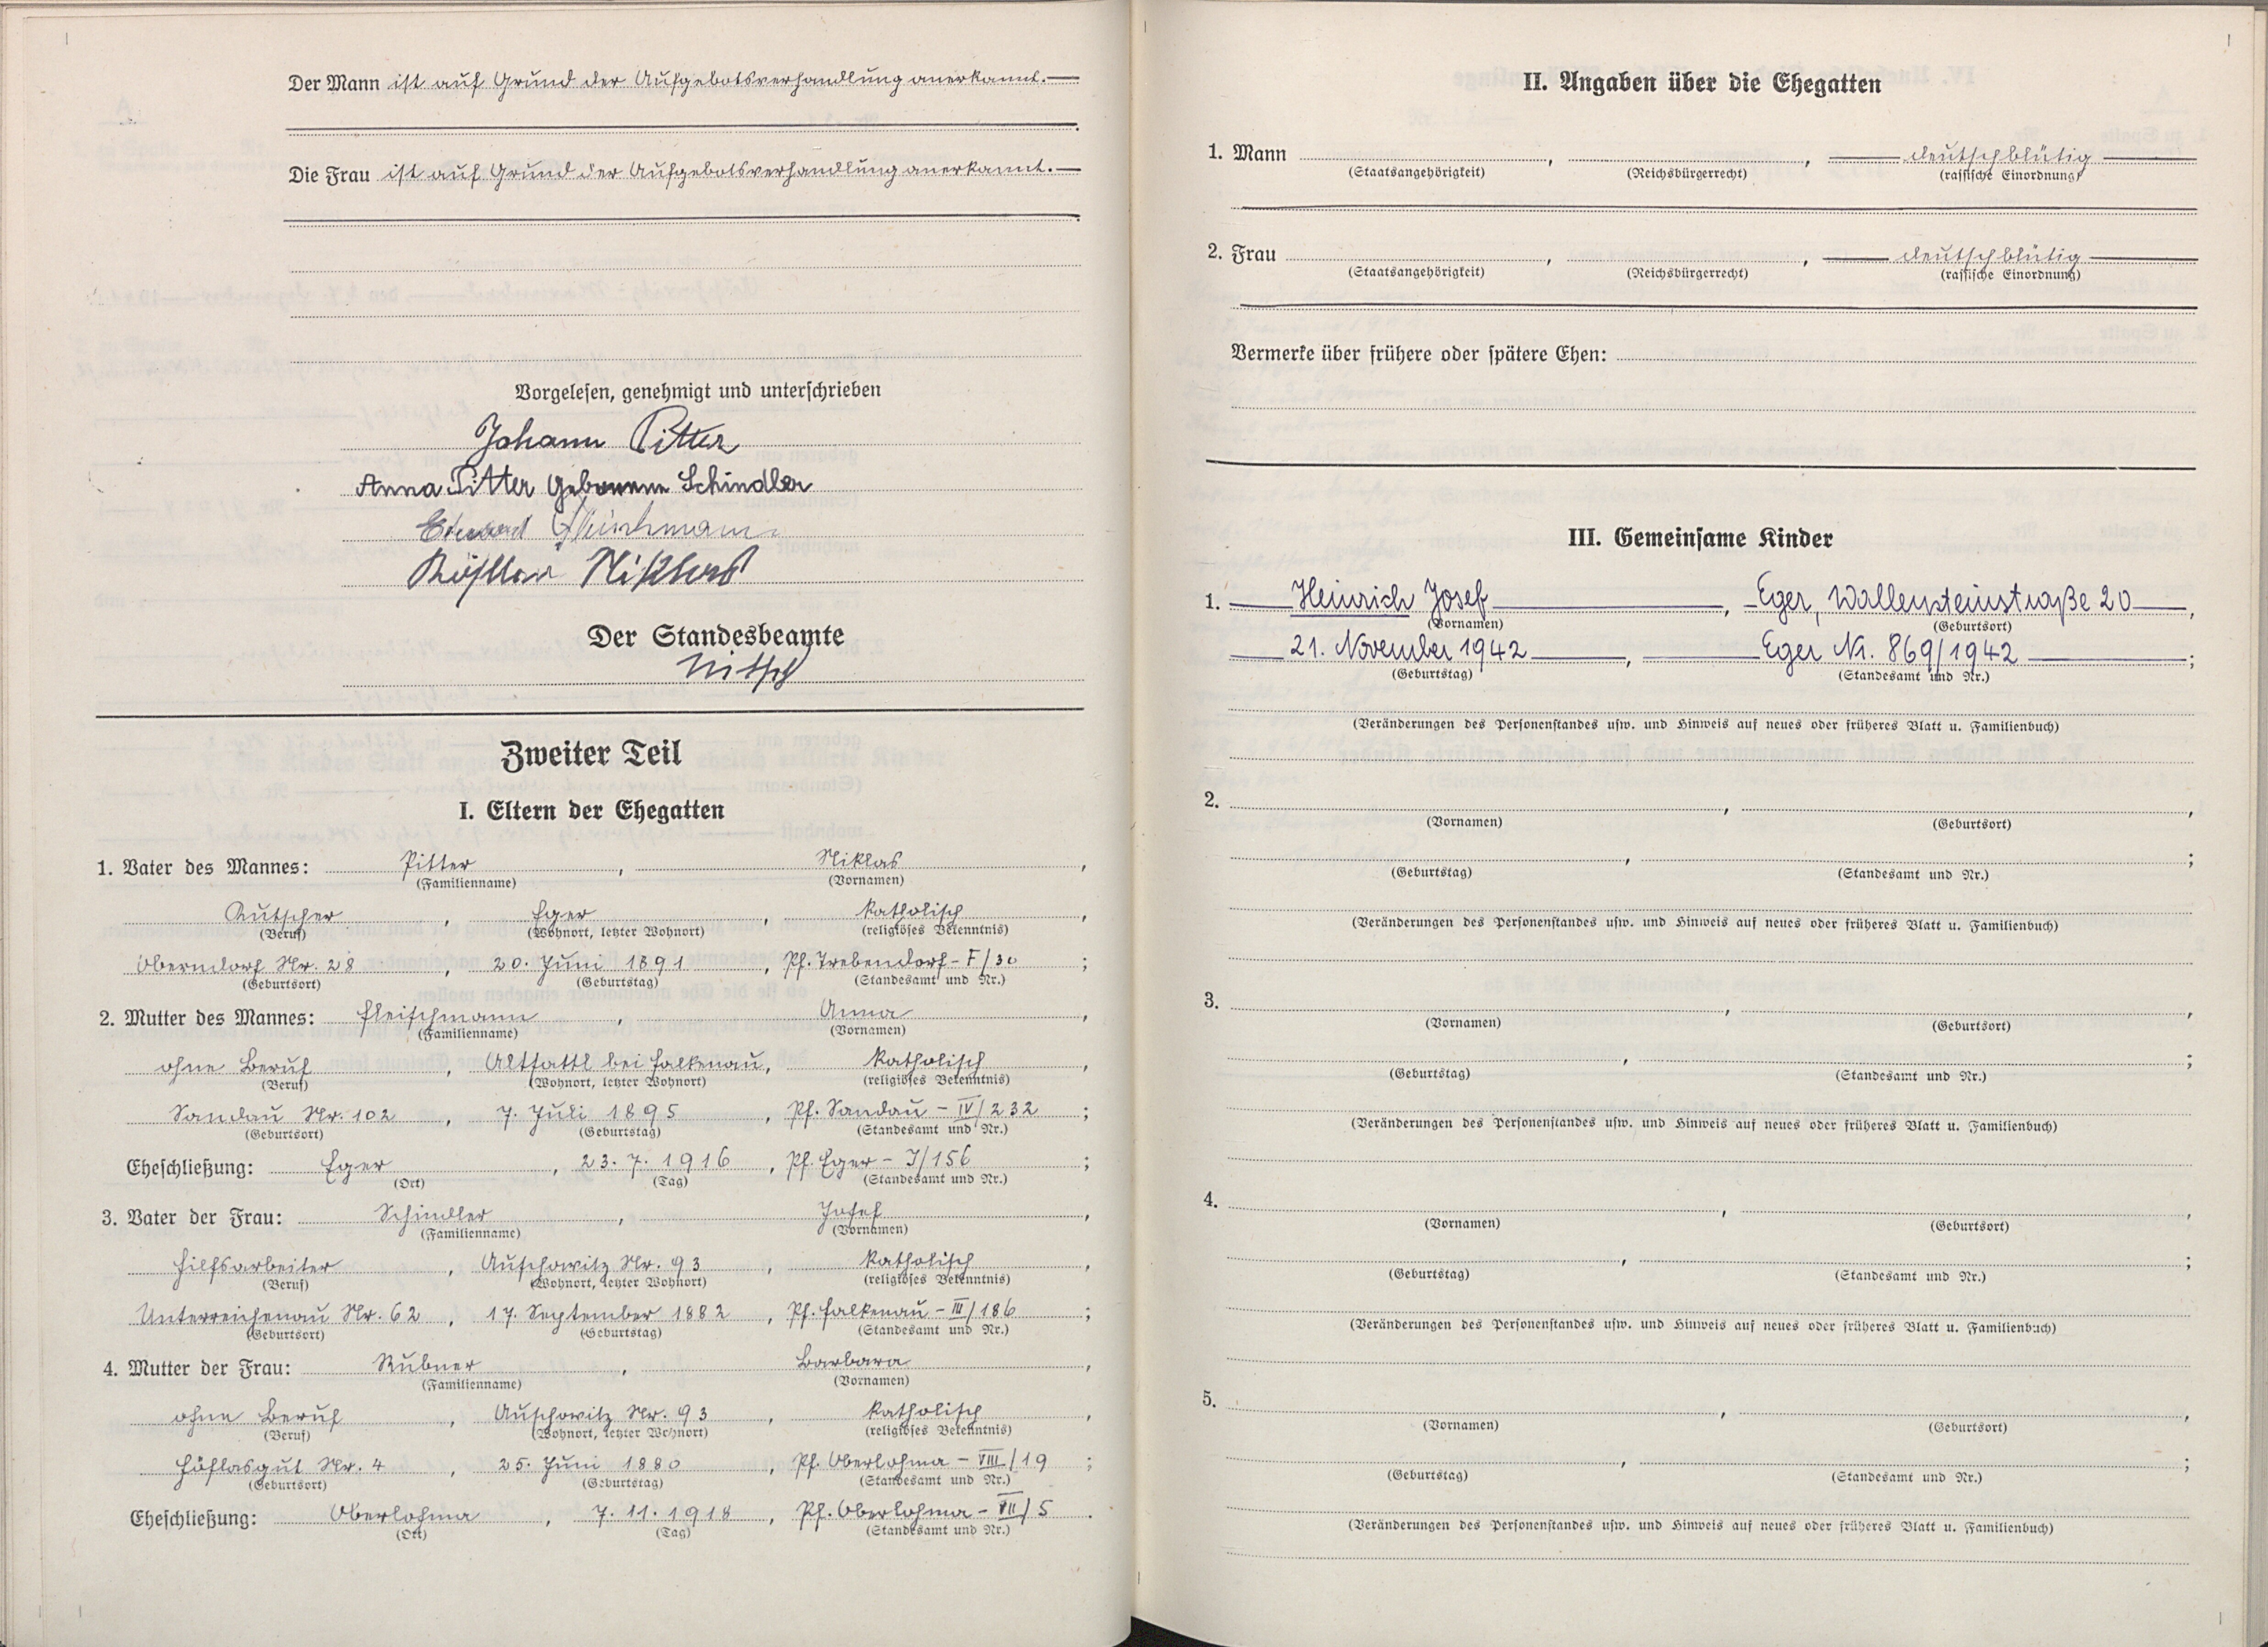 Der Mann ist auf Grund der Aufgebotsverhandlung anerkannt.
Die Frau ist auf Grund der Aufgebotsverhandlung anerkannt.
Vorgelesen, genehmigt und unterschrieben
Johann Pitter
Anna Pitter geborene Schindler
Der Standesbeamte
Nitsch
Zweiter Teil
I. Eltern der Ehegatten
1. Vater des Mannes: Pitter, Niklas,
(Familienname) (Vornamen)
Kutscher, Eger, katholisch,
(Beruf) (Wohnort, letzter Wohnort) (religiöses Bekenntnis)
Oberndorf Nr. 28, 20. Juni 1891, Pf. Trebendorf - F/30;
(Geburtsort) (Geburtstag) (Standesamt und Nr.)
2. Mutter des Mannes: Fleischmann, Anna,
(Familienname) (Vornamen)
ohne Beruf, Altsattl bei Falkenau, katholisch,
(Beruf) (Wohnort, letzter Wohnort) (religiöses Bekenntnis)
Sandau Nr. 102, 7. Juli 1895, Pf. Sandau - IV/232;
(Geburtsort) (Geburtstag) (Standesamt und Nr.)
Eheschließung: Eger, 23. 7. 1916, Pf. Eger - J/156;
(Ort) (Tag) (Standesamt und Nr.)
3. Vater der Frau: Schindler, Josef,
(Familienname) (Vornamen)
Hilfsarbeiter, Auschowitz Nr. 93, katholisch,
(Beruf) (Wohnort, letzter Wohnort) (religiöses Bekenntnis)
Unterreichenau Nr. 62, 17. September 1882, Pf. Falkenau - III/186;
(Geburtsort) (Geburtstag) (Standesamt und Nr.)
4. Mutter der Frau: Rubner, Barbara,
(Familienname) (Vornamen)
ohne Beruf, Auschowitz Nr. 93, katholisch,
(Beruf) (Wohnort, letzter Wohnort) (religiöses Bekenntnis)
Höflasgut Nr. 4, 25. Juni 1880, Pf. Oberlohma - VIII/19;
(Geburtsort) (Geburtstag) (Standesamt und Nr.)
Eheschließung: Oberlohma, 7. 11. 1918, Pf. Oberlohma - VII/5.
(Ort) (Tag) (Standesamt und Nr.)
II. Angaben über die Ehegatten
1. Mann , , deutschblütig
(Staatsangehörigkeit) (Reichsbürgerrecht) (rassische Einordnung)
2. Frau , , deutschblütig
(Staatsangehörigkeit) (Reichsbürgerrecht) (rassische Einordnung)
Vermerke über frühere oder spätere Ehen:
III. Gemeinsame Kinder
1. Heinrich Josef, Eger, Wallensteinstraße 20,
(Vornamen) (Geburtsort)
21. November 1942, Eger Nr. 869/1942;
(Geburtstag) (Standesamt und Nr.)
(Veränderungen des Personenstandes usw. und Hinweis auf neues oder früheres Blatt u. Familienbuch)
2. , ,
(Vornamen) (Geburtsort)
, ;
(Geburtstag) (Standesamt und Nr.)
(Veränderungen des Personenstandes usw. und Hinweis auf neues oder früheres Blatt u. Familienbuch)
3. , ,
(Vornamen) (Geburtsort)
, ;
(Geburtstag) (Standesamt und Nr.)
(Veränderungen des Personenstandes usw. und Hinweis auf neues oder früheres Blatt u. Familienbuch)
4. , ,
(Vornamen) (Geburtsort)
, ;
(Geburtstag) (Standesamt und Nr.)
(Veränderungen des Personenstandes usw. und Hinweis auf neues oder früheres Blatt u. Familienbuch)
5. , ,
(Vornamen) (Geburtsort)
, ;
(Geburtstag) (Standesamt und Nr.)
(Veränderungen des Personenstandes usw. und Hinweis auf neues oder früheres Blatt u. Familienbuch)